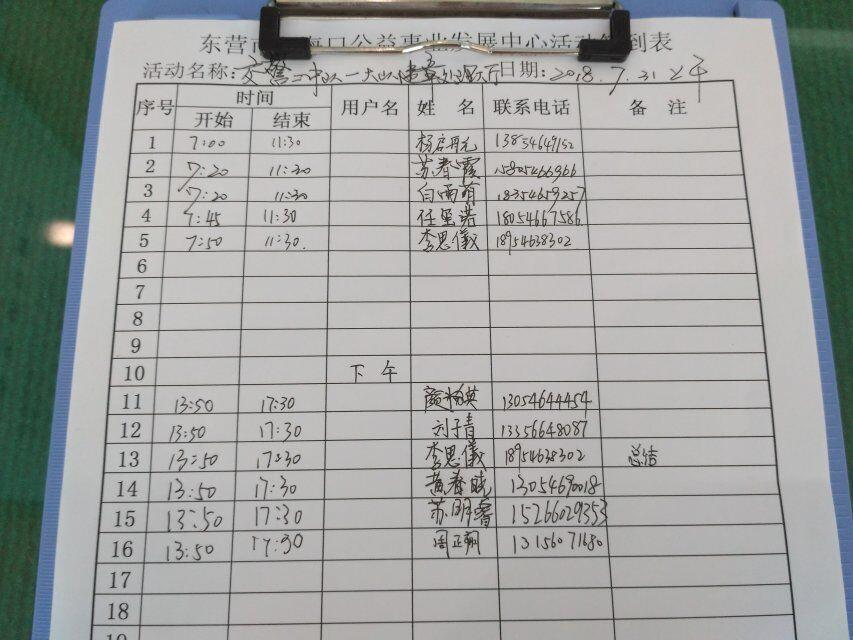 东营市 海口公益事业发展中心活动签到表
活动名称: 交警二中队一大队违章处理大厅 日期: 2018.7.31上午
序号 时间 用户名 姓 名 联系电话 备 注
开始 结束
1 7:00 11:30 13854649152
2 7:20 11:30 苏春霞 15805466966
3 7:20 11:30 白雨萌 18354659257
4 7:45 11:30 任星诺 18054667586
5 7:50 11:30. 李思儀 18954638302
6
7
8
9
10 下 午
11 13:50 17:30 13054644454
12 13:50 17:30 刘子青 13356648087
13 13:50 17:30 李思儀 18954638302 总结
14 13:50 17:30 黄春晓 13054690018
15 13:50 17:30 苏明睿 15266029353
16 13:50 17:30 周正翔 13156071680
17
18